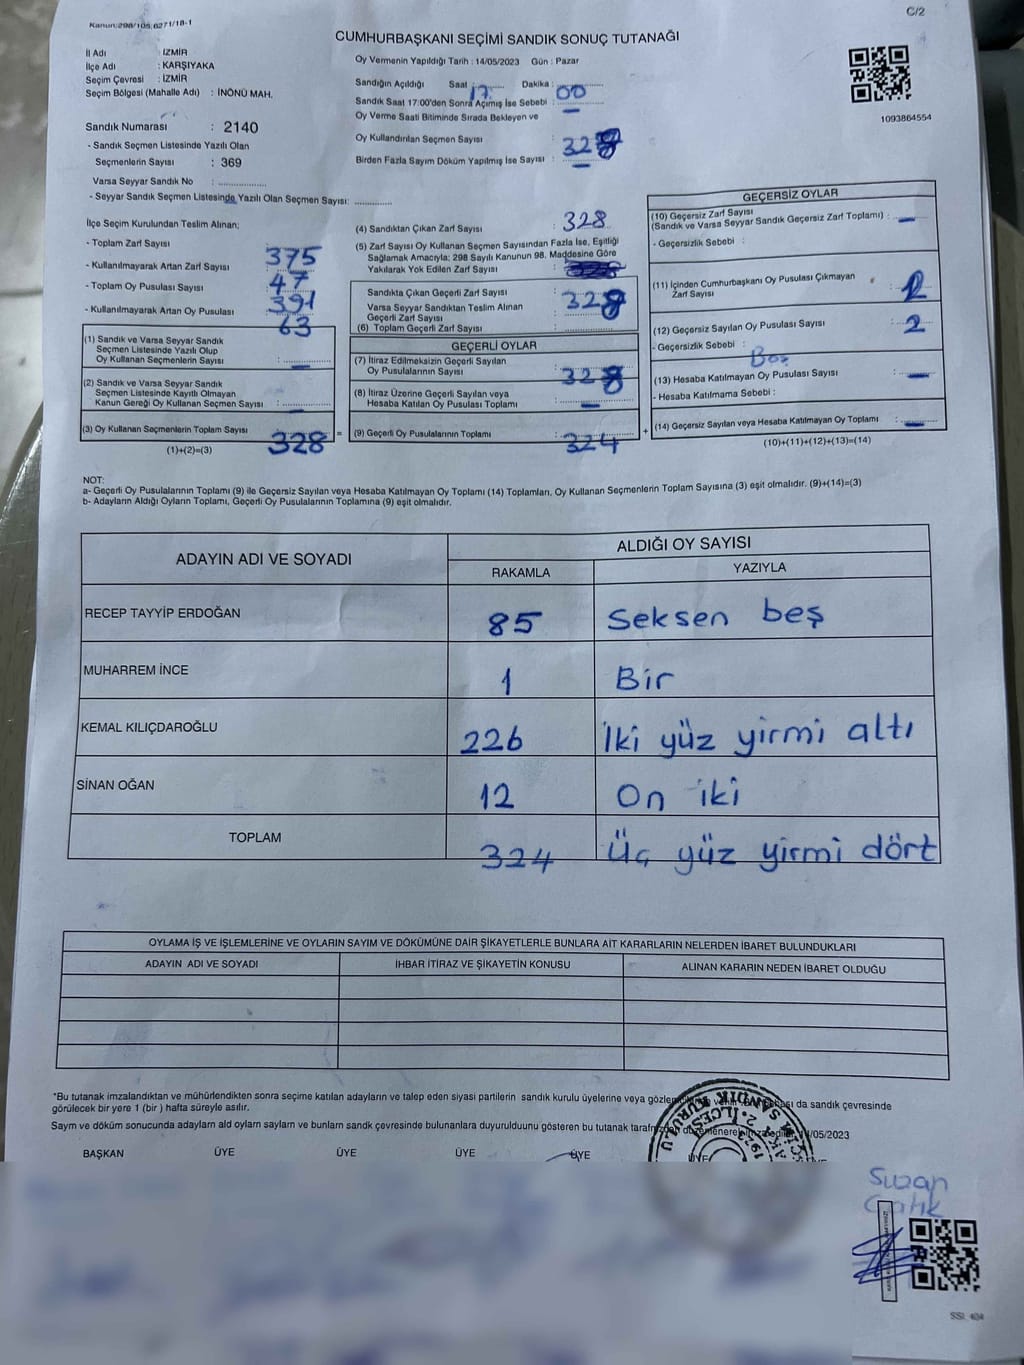 Kanun:298/105,6271/18-1
C/2
CUMHURBAŞKANI SEÇİMİ SANDIK SONUÇ TUTANAĞI
İl Adı : İZMİR
İlçe Adı : KARŞIYAKA
Seçim Çevresi : İZMİR
Seçim Bölgesi (Mahalle Adı) : İNÖNÜ MAH.
Sandık Numarası : 2140
- Sandık Seçmen Listesinde Yazılı Olan
Seçmenlerin Sayısı : 369
Varsa Seyyar Sandık No : ..................
- Seyyar Sandık Seçmen Listesinde Yazılı Olan Seçmen Sayısı: ..............
Oy Vermenin Yapıldığı Tarih : 14/05/2023 Gün : Pazar
Sandığın Açıldığı Saat : 17 Dakika : 00
Sandık Saat 17:00'den Sonra Açımış İse Sebebi : —
Oy Verme Saati Bitiminde Sırada Bekleyen ve
Oy Kullandırılan Seçmen Sayısı : 328
Birden Fazla Sayım Döküm Yapılmış İse Sayısı : —
1093864554
İlçe Seçim Kurulundan Teslim Alınan;
- Toplam Zarf Sayısı : 375
- Kullanılmayarak Artan Zarf Sayısı : 47
- Toplam Oy Pusulası Sayısı : 391
- Kullanılmayarak Artan Oy Pusulası : 63
(1) Sandık ve Varsa Seyyar Sandık
Seçmen Listesinde Yazılı Olup
Oy Kullanan Seçmenlerin Sayısı : —
(2) Sandık ve Varsa Seyyar Sandık
Seçmen Listesinde Kayıtlı Olmayan
Kanun Gereği Oy Kullanan Seçmen Sayısı : —
(3) Oy Kullanan Seçmenlerin Toplam Sayısı : 328
(1)+(2)=(3)
(4) Sandıktan Çıkan Zarf Sayısı : 328
(5) Zarf Sayısı Oy Kullanan Seçmen Sayısından Fazla İse, Eşitliği
Sağlamak Amacıyla; 298 Sayılı Kanunun 98. Maddesine Göre
Yakılarak Yok Edilen Zarf Sayısı :
Sandıkta Çıkan Geçerli Zarf Sayısı : 328
Varsa Seyyar Sandıktan Teslim Alınan
Geçerli Zarf Sayısı :
(6) Toplam Geçerli Zarf Sayısı : ..................
GEÇERLİ OYLAR
(7) İtiraz Edilmeksizin Geçerli Sayılan
Oy Pusulalarının Sayısı : 328
(8) İtiraz Üzerine Geçerli Sayılan veya
Hesaba Katılan Oy Pusulası Toplamı : —
= (9) Geçerli Oy Pusulalarının Toplamı : 324 +
GEÇERSİZ OYLAR
(10) Geçersiz Zarf Sayısı
(Sandık ve Varsa Seyyar Sandık Geçersiz Zarf Toplamı) : —
- Geçersizlik Sebebi :
(11) İçinden Cumhurbaşkanı Oy Pusulası Çıkmayan
Zarf Sayısı : 2
(12) Geçersiz Sayılan Oy Pusulası Sayısı : 2
- Geçersizlik Sebebi : Boş
(13) Hesaba Katılmayan Oy Pusulası Sayısı : —
- Hesaba Katılmama Sebebi :
(14) Geçersiz Sayılan veya Hesaba Katılmayan Oy Toplamı : —
(10)+(11)+(12)+(13)=(14)
NOT:
a- Geçerli Oy Pusulalarının Toplamı (9) ile Geçersiz Sayılan veya Hesaba Katılmayan Oy Toplamı (14) Toplamları, Oy Kullanan Seçmenlerin Toplam Sayısına (3) eşit olmalıdır. (9)+(14)=(3)
b- Adayların Aldığı Oyların Toplamı, Geçerli Oy Pusulalarının Toplamına (9) eşit olmalıdır.
ADAYIN ADI VE SOYADI ALDIĞI OY SAYISI
RAKAMLA YAZIYLA
RECEP TAYYİP ERDOĞAN 85 Seksen beş
MUHARREM İNCE 1 Bir
KEMAL KILIÇDAROĞLU 226 İki yüz yirmi altı
SİNAN OĞAN 12 On iki
TOPLAM 324 Üç yüz yirmi dört
OYLAMA İŞ VE İŞLEMLERİNE VE OYLARIN SAYIM VE DÖKÜMÜNE DAİR ŞİKAYETLERLE BUNLARA AİT KARARLARIN NELERDEN İBARET BULUNDUKLARI
ADAYIN ADI VE SOYADI İHBAR İTİRAZ VE ŞİKAYETİN KONUSU ALINAN KARARIN NEDEN İBARET OLDUĞU
*Bu tutanak imzalandıktan ve mühürlendikten sonra seçime katılan adayların ve talep eden siyasi partilerin sandık kurulu üyelerine veya da sandık çevresinde
görülecek bir yere 1 (bir ) hafta süreyle asılır.
Sayım ve döküm sonucunda adayların ald oyların sayların ve bunların sandk çevresinde bulunanlara duyurulduunu gösteren bu tutanak /05/2023
BAŞKAN ÜYE ÜYE ÜYE ÜYE ÜYE
Suzan
SSI_404